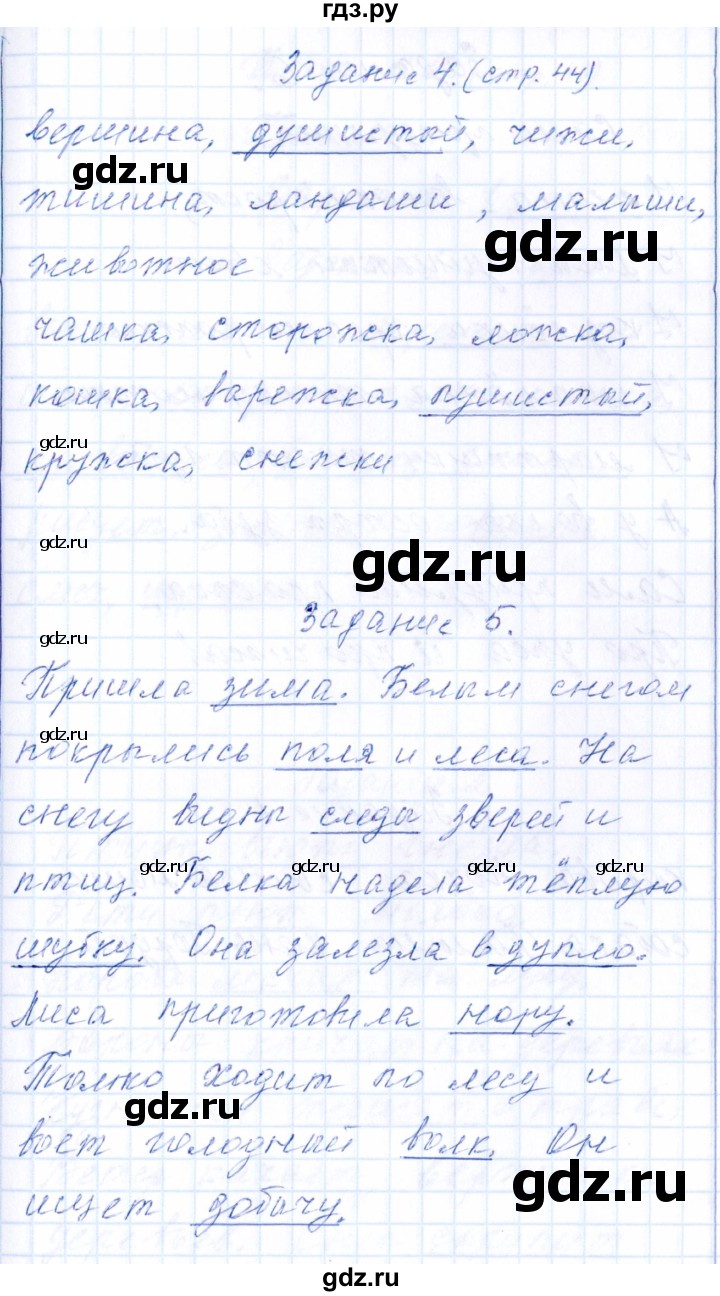 гдз.ру
Задание 4. (стр. 44).
вершина, душистый, чижи,
gdz.ru
тишина, ландыши, малыши,
gdz.ru
животное
чашка, сторожка, ложка,
кошка, варежка, пушистый,
gdz.ru
кружка, снежки
gdz.ru
gdz.ru
Задание 5.
gdz.ru
Пришла зима. Белым снегом
gdz.ru
покрылись поля и леса. На
снегу видны следы зверей и
gdz.ru gdz.ru gdz.ru
птиц. Белка надела тёплую
шубку. Она залезла в дупло.
Лиса приготовила нору.
Только ходит по лесу и
gdz.ru
воет голодный волк. Он
gdz.ru
ищет добычу.
gdz.ru